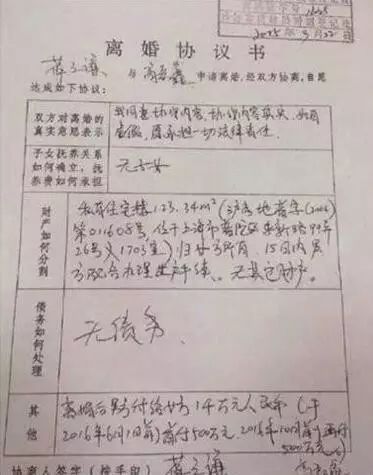 离婚协议书
与 申请离婚,经双方协商,自愿
达成如下协议:
双方对离婚的
真实意思表示
我同意协议内容,协议内容真实,如有
虚假,愿承担一切法律责任
子女抚养关系
如何确立,抚
养费如何承担
无子女
财产如何分割
私有住宅楼123.34m²(沪房地普字(2006)
第011608号,位于上海市普陀区 新路99弄
26号 1703室)归女方所有,15日内男
方配合办理过户手续。无其它财产。
债务如何处理
无债务
其他
离婚后男方付给女方1千万元人民币(于
2016年6月1日前)首付500万元,2016年10月前
500万元
协商人签字(按手印)